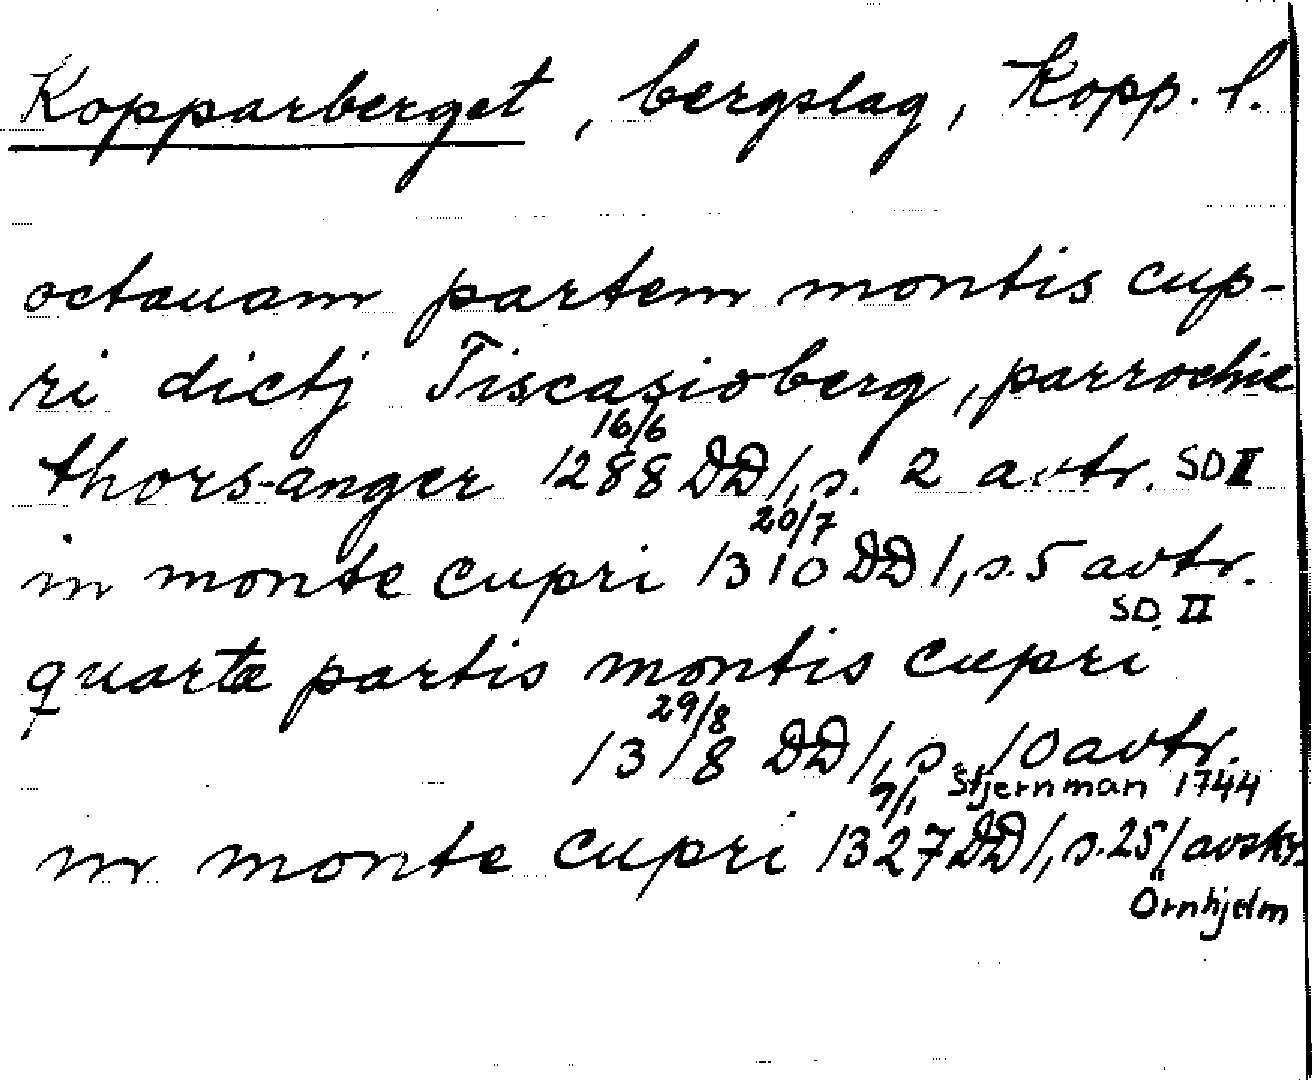 Kopparberget, bergslag, Kopp. l.
octauam partem montis cup-
ri dictj Tiscasioberg, parrochie
16/6
thors-anger 1288 DD 1, s. 2 avtr. SD II
20/7
in monte cupri 1310 DD 1, s. 5 avtr.
SD. II
quarte partis montis cupri
29/8
1318 DD 1, s. 10 avtr.
9/1 Stjernman 1744
in monte cupri 1327 DD 1, s. 25, avskr.
Örnhjelm